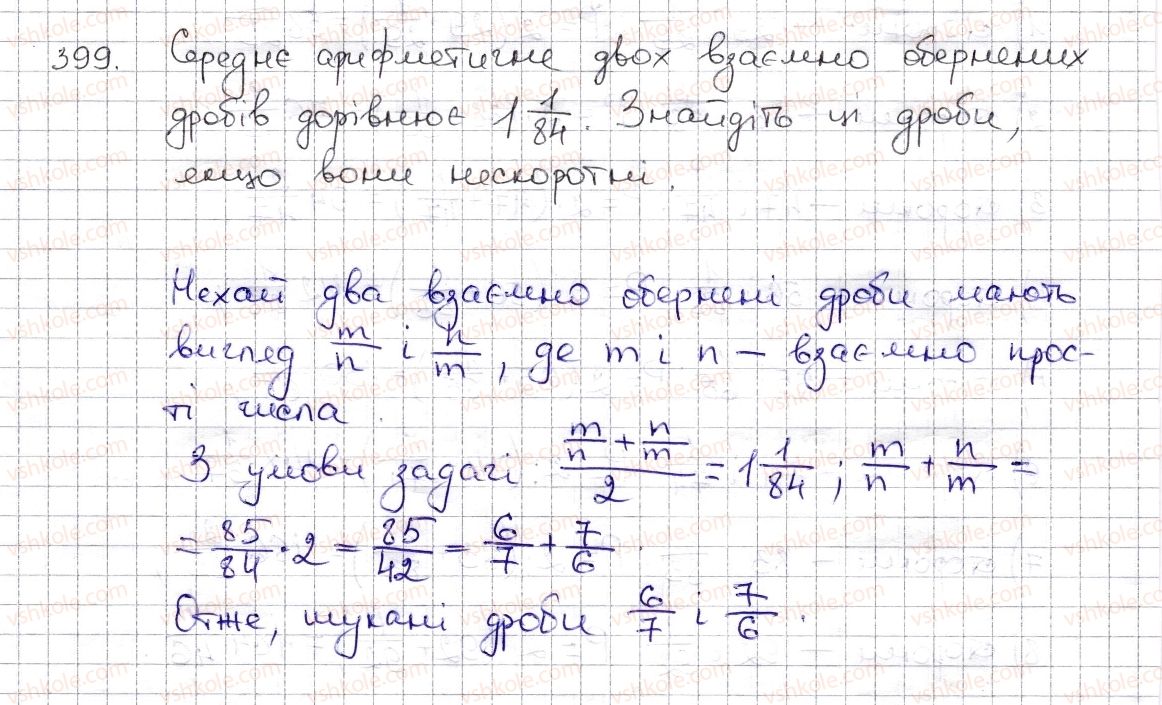 399. Середнє арифметичне двох взаємно обернених
дробів дорівнює 1 1/84. Знайдіть ці дроби,
якщо вони нескоротні.
Нехай два взаємно обернені дроби мають
вигляд m/n і n/m, де m і n – взаємно прос-
ті числа.
З умови задачі: (m/n + n/m)/2 = 1 1/84; m/n + n/m =
= 85/84 · 2 = 85/42 = 6/7 + 7/6.
Отже, шукані дроби 6/7 і 7/6.
vshkole.com